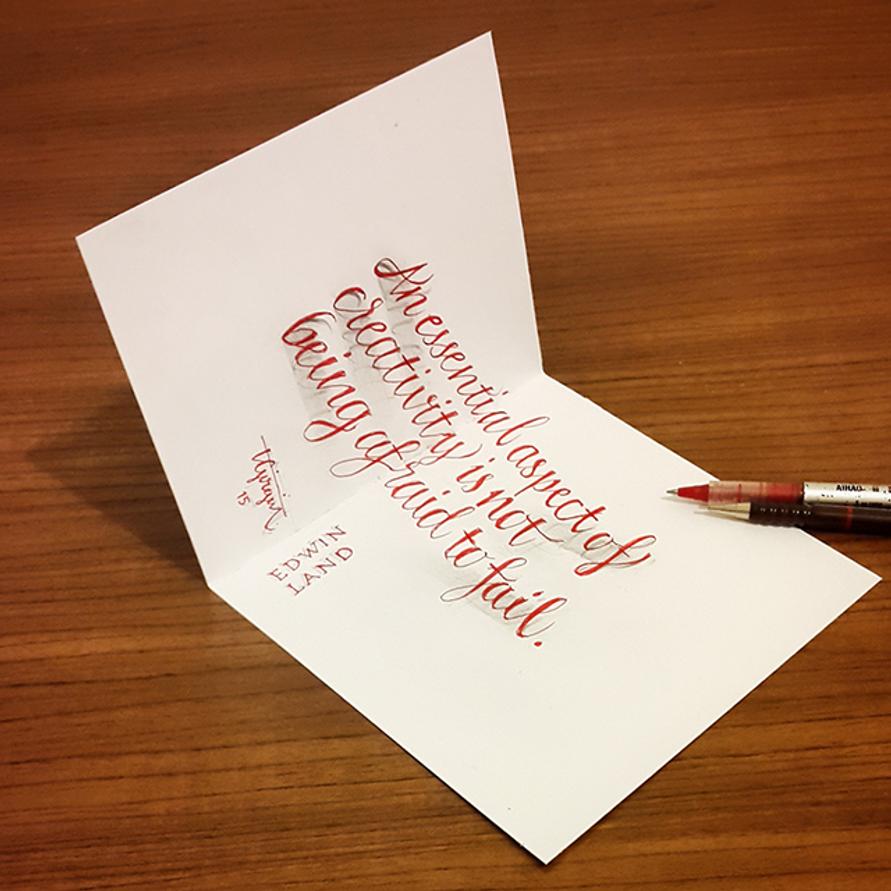 An essential aspect of
creativity is not
being afraid to fail.
EDWIN
LAND
15